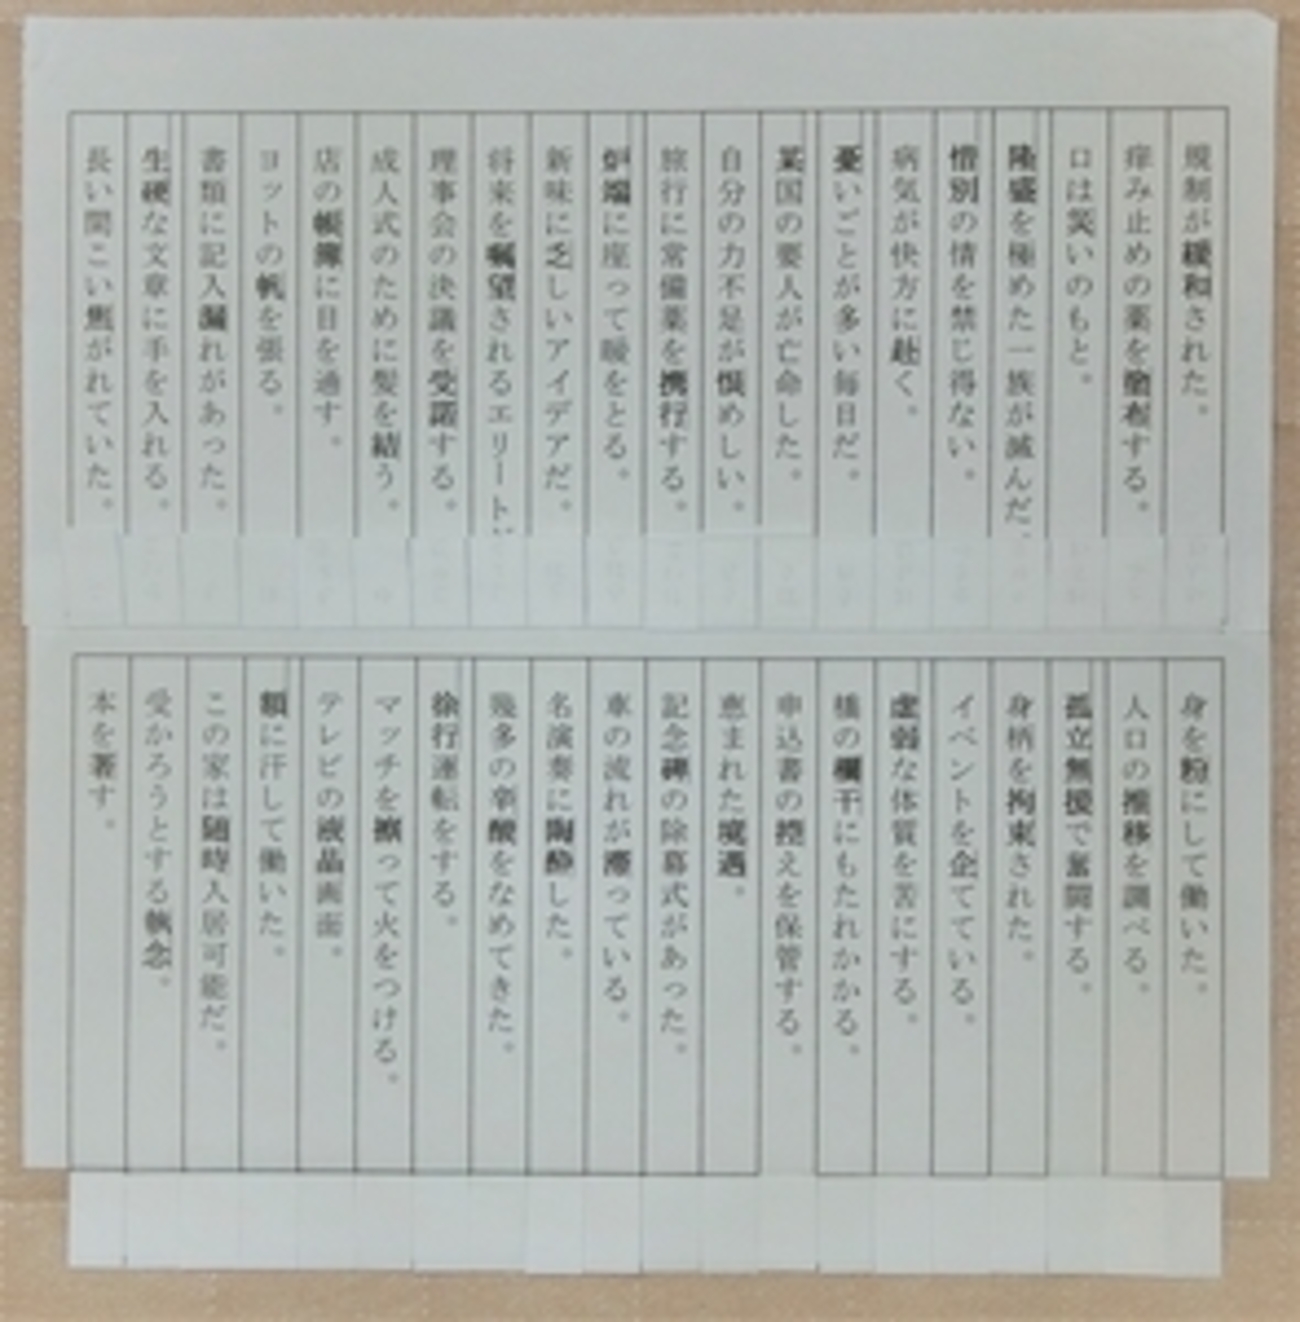 規制が緩和された。
痒み止めの薬を塗布する。
口は災いのもと。
隆盛を極めた一族が滅んだ
惜別の情を禁じ得ない。
病気が快方に赴く。
憂いごとが多い毎日だ。
某国の要人が亡命した。
自分の力不足が恨めしい。
旅行に常備薬を携行する。
炉端に座って暖をとる。
新味に乏しいアイデアだ。
将来を嘱望されるエリート
理事会の決議を受諾する。
成人式のために髪を結う。
店の帳簿に目を通す。
ヨットの帆を張る。
書類に記入漏れがあった。
生硬な文章に手を入れる。
長い間こい焦がれていた。
身を粉にして働いた。
人口の推移を調べる。
孤立無援で奮闘する。
身柄を拘束された。
イベントを企てている。
虚弱な体質を苦にする。
橋の欄干にもたれかかる。
申込書の控えを保管する。
恵まれた境遇。
記念碑の除幕式があった。
車の流れが滞っている。
名演奏に陶酔した。
幾多の辛酸をなめてきた。
徐行運転をする。
マッチを擦って火をつける。
テレビの液晶画面。
額に汗して働いた。
この家は随時入居可能だ。
受かろうとする執念。
本を著す。